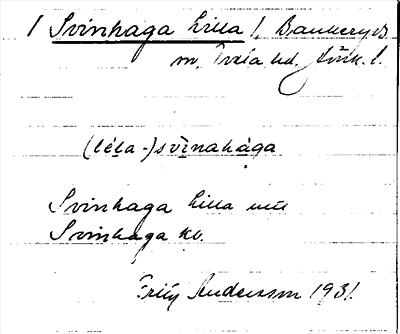 / Svinhaga lilla /, Bankeryds
sn, Tveta hd. Jönk. l.
(lέla-)svinahåga
Svinhaga lilla
Svinhaga kv.
Fritz Andersson 1931.